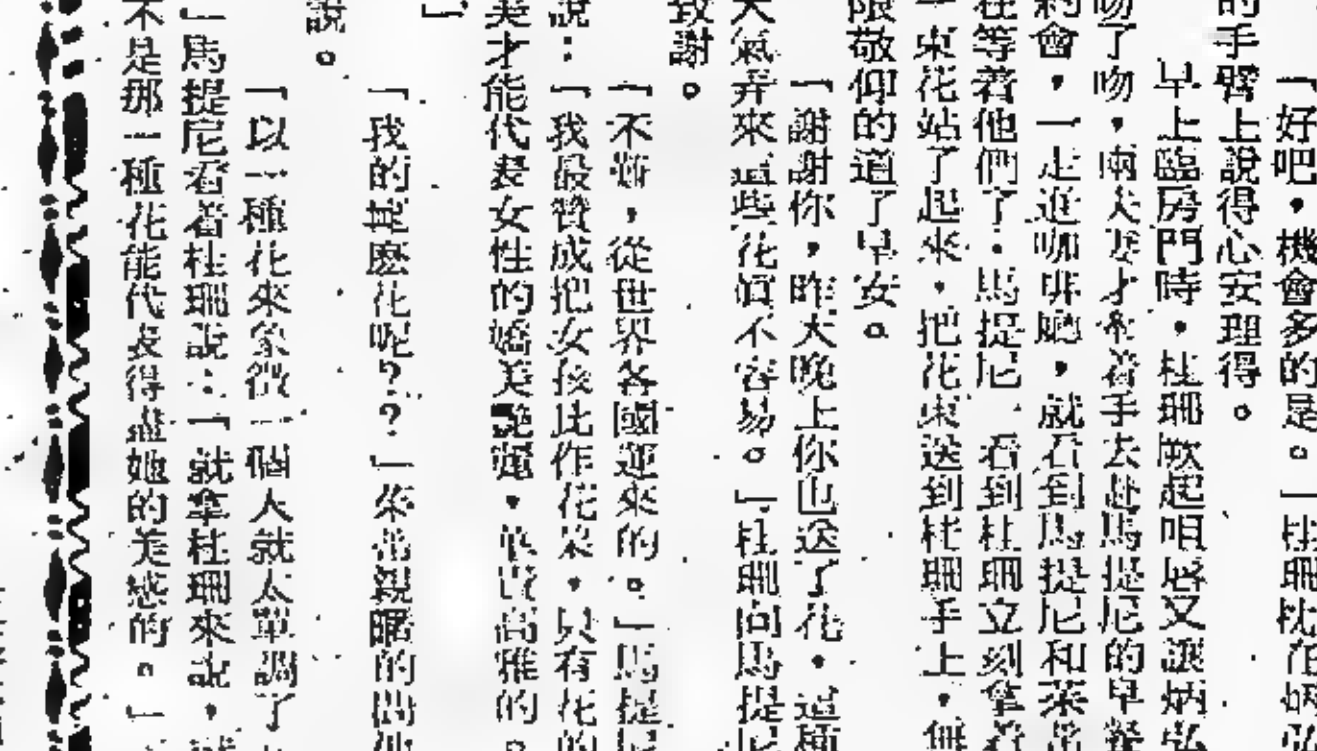 「好吧，機會多的是。」杜珊枕在炳弘
的手臂上說得心安理得。
早上臨房門時，杜珊噘起咀唇又讓炳弘
吻了吻，兩夫妻才牽着手去赴馬提尼的早餐
約會，一走進咖啡廳，就看到馬提尼和茱蒂
在等着他們了。馬提尼一看到杜珊立刻拿着
束花站了起來，把花束送到杜珊手上，無
限敬仰的道了早安。
「謝謝你，昨天晚上你也送了花，這種
天氣弄來這些花眞不容易。」杜珊向馬提尼
致謝。
「不難，從世界各國運來的。」馬提尼
說：「我最贊成把女孩比作花朵，只有花的
美才能代表女性的嬌美艷麗，華貴高雅的。
」
「我的是甚麽花呢？？」茱蒂親暱的問他
說。
「以一種花來象徵一個人就太單調了
」馬提尼看着杜珊說：「就拿杜珊來說，
不是那一種花能代表得盡她的美感的。」